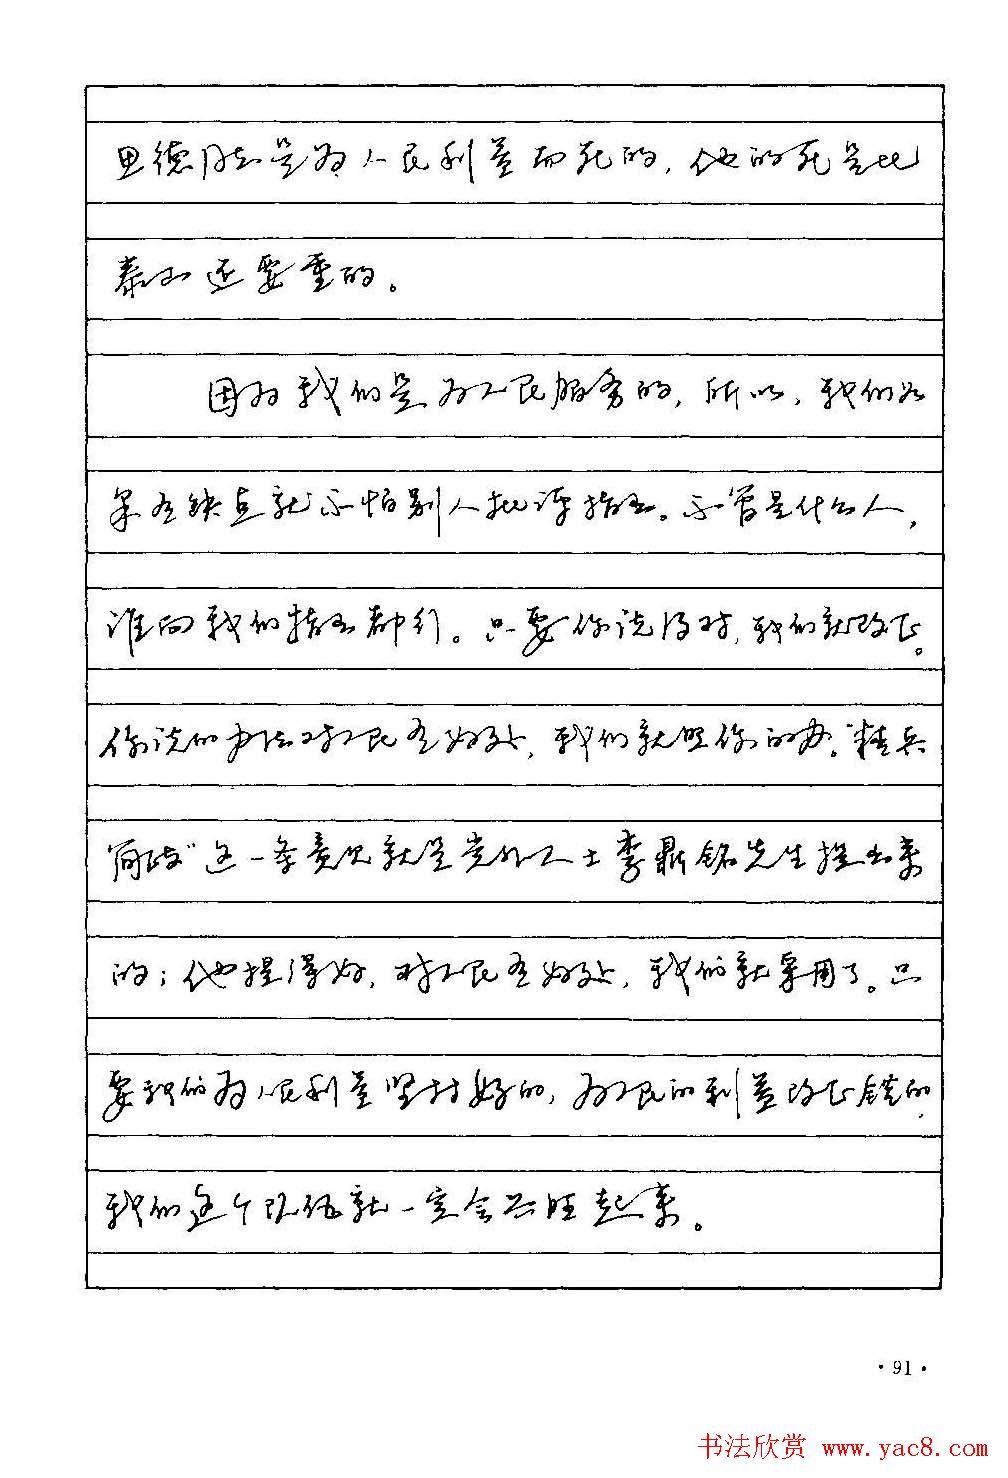 思德同志是为人民利益而死的，他的死是比
泰山还要重的。
因为我们是为人民服务的，所以，我们如
果有缺点就不怕别人批评指出。不管是什么人，
谁向我们指出都行。只要你说得对，我们就改正。
你说的办法对人民有好处，我们就照你的办。“精兵
简政”这一条意见就是党外人士李鼎铭先生提出来
的；他提得好，对人民有好处，我们就采用了。只
要我们为人民利益坚持好的，为人民的利益改正错的，
我们这个队伍就一定会兴旺起来。
·91·
书法欣赏 www.yac8.com